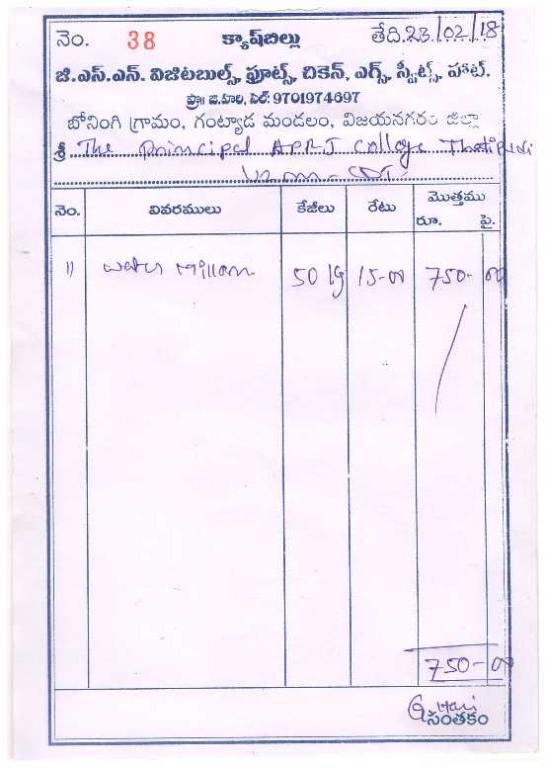 నెం. 38 క్యాష్‌బిల్లు తేది.23/02/18
జి.ఎస్.ఎన్. విజిటబుల్స్, ఫ్రూట్స్, చికెన్, ఎగ్స్, స్వీట్స్, హాట్.
ప్రొ॥ జి.హరి, సెల్: 9701974697
బోనంగి గ్రామం, గంట్యాడ మండలం, విజయనగరం జిల్లా
శ్రీ The Principal APRJ College Thatipudi
నెం. వివరములు కేజీలు రేటు మొత్తము
రూ. పై.
1) water millam 50 kg 15-00 750-00
750-00
G Hari
సంతకం